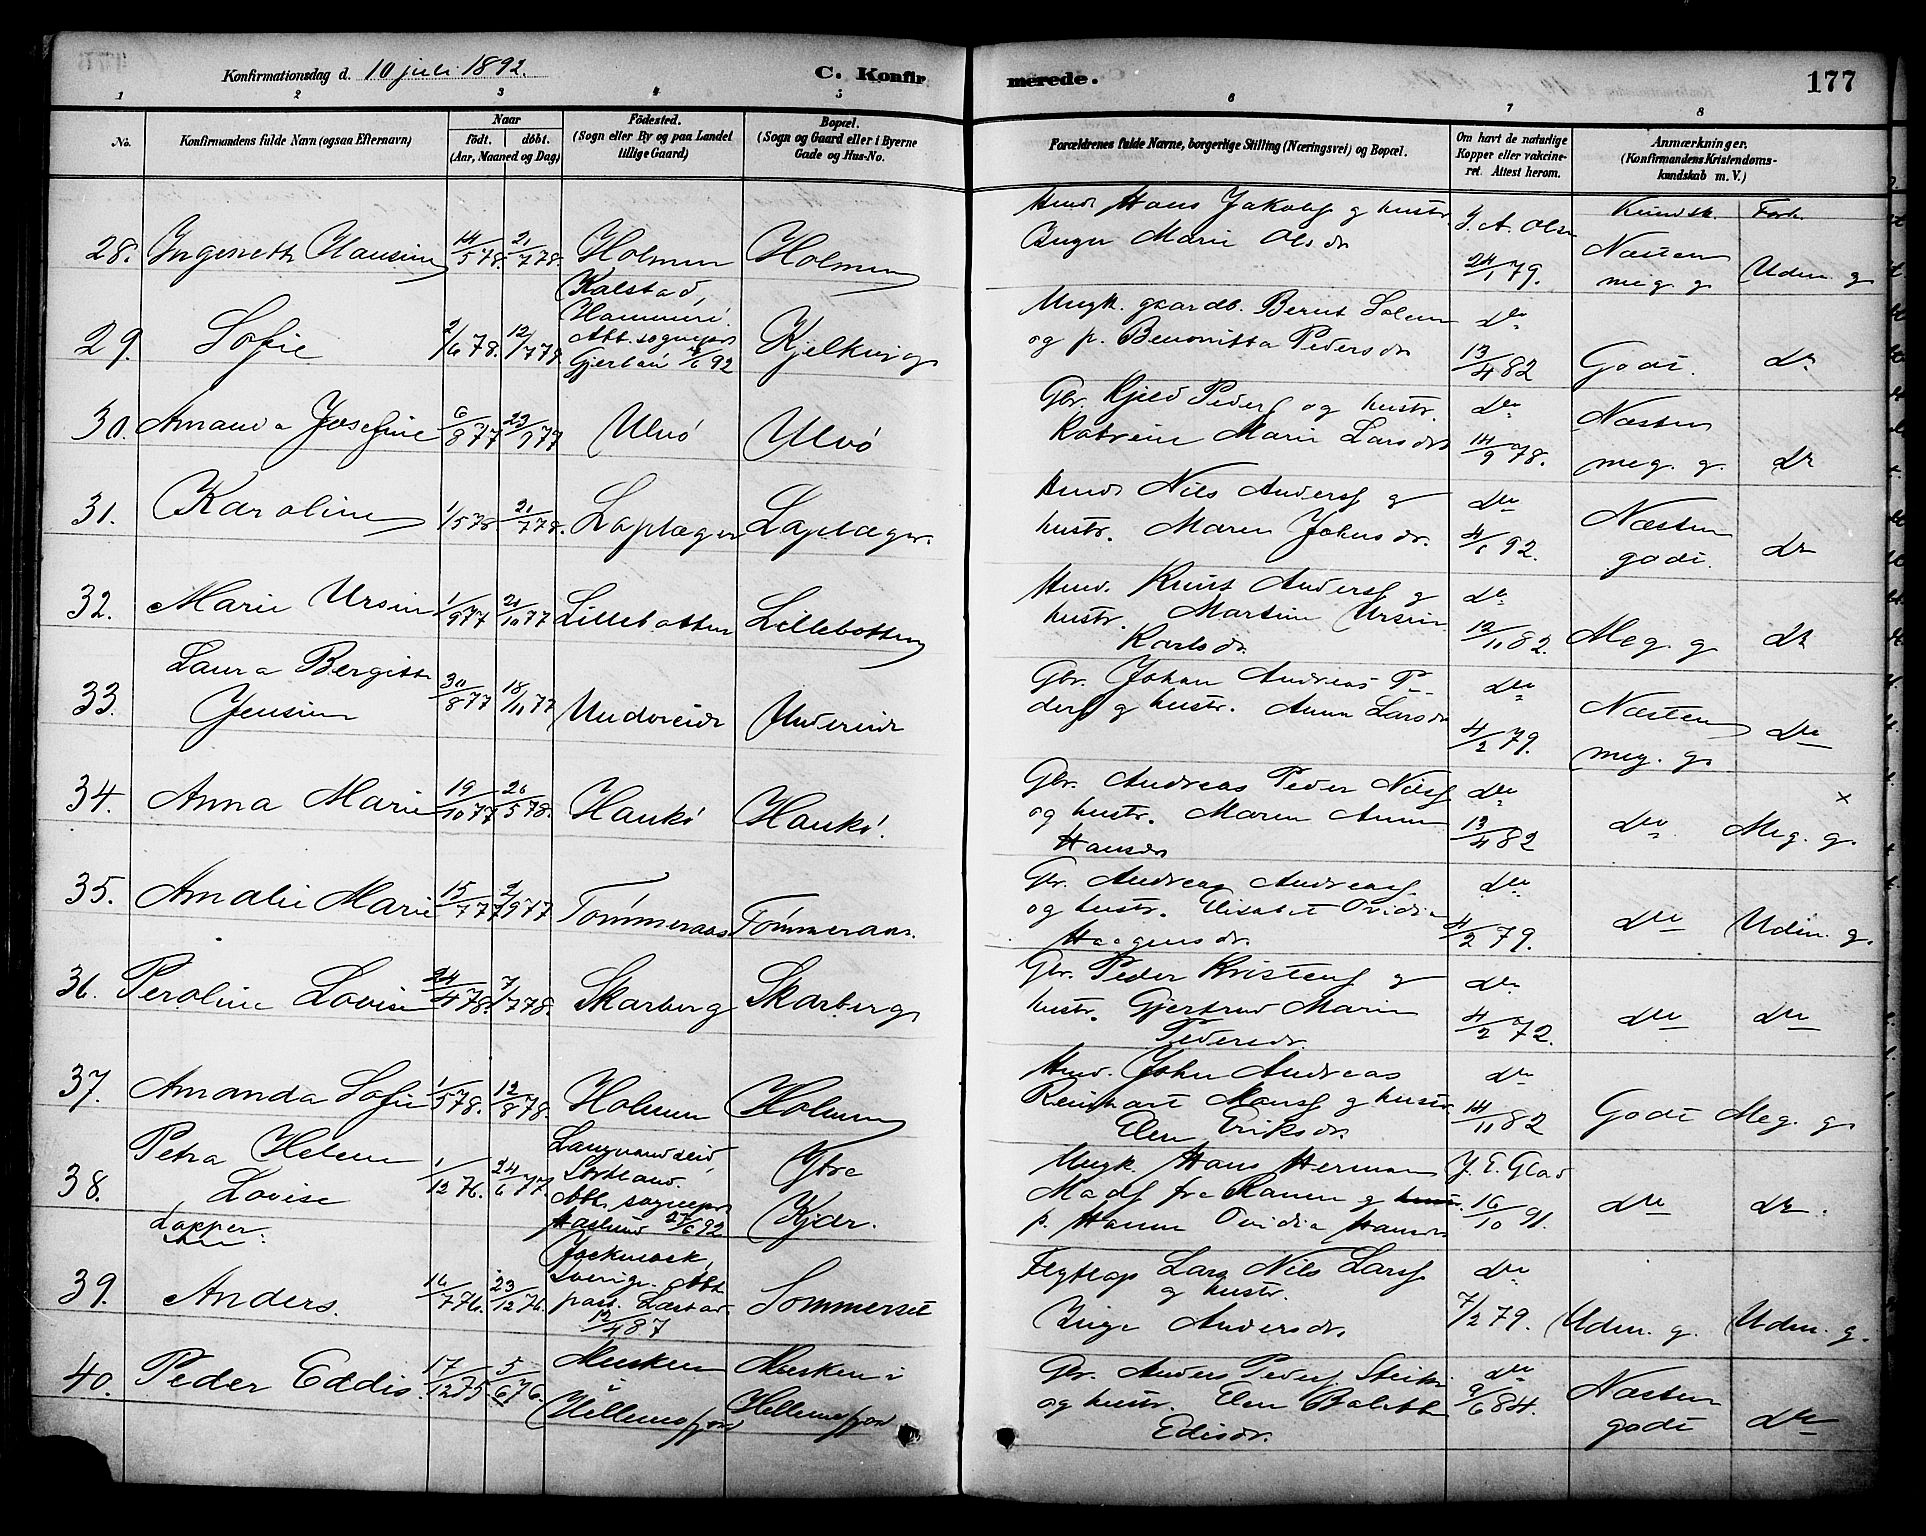 Konfirmationsdag d. 10 juli 1892. C. Konfirmerede. 177
1 2 3 4 5 6 7 8
No. Konfirmandens fulde Navn (ogsaa Efternavn) Naar født. døbt. (Aar, Maaned og Dag) Födested. (Sogn eller By og paa Landet tillige Gaard) Bopæl. (Sogn og Gaard eller i Byerne Gade og Hus-No. Forældrenes fulde Navne, borgerlige Stilling (Næringsvei) og Bopæl. Om havt de naturlige Kopper eller vakcineret. Attest herom. Anmærkninger. (Konfirmandens Kristendomskundskab m. V.)
Kundsk. Forh.
28. Ingeneth Hansine 14/5 78. 21/7 78. Holmen Holmen
Hmd Hans Jakobs g hustr.
Inger Marie Olsdr
J. A. Olsn
24/1 79.
Næsten
meg. g Uden. g
29. Sofie 2/6 78. 12/7 79.
Kalstad,
Hammerö.
Att. sognepr
Gjerløw 92
Kjelkvig
Ungk. gaardb. Bernt Solem
og p. Benonitta Pedersdr
do
13/4 82 Gode. do
30. Amanda Josefine 6/8 77 23/9 77 Ulvö Ulvö
Gbr. Kjeld Peders og hustr.
Katrine Marie Larsdr
do
14/9 78.
Næsten
meg. g. do
31. Karoline 1/5 78 21/7 78. Laplæger Laplæger.
Hmd Nils Anders g
hustr. Maren Johnsdr.
do
4/6 92.
Næsten
gode. do
32. Marie Ursin 1/9 77 21/10 77 Lillebotten Lillebotten
Hmd. Knut Anders g
hustr. Martine Ursin
Karlsdr.
do
12/11 82. Meg. g do
33. Laura Bergitte
Jensine 30/8 77 18/11 77 Undereide Undereide
Gbr. Johan Andreas Peders
g hustr. Anna Larsdr
do
4/2 79.
Næsten
meg. g do
34. Anna Marie 19/10 77 26/5 78. Haukö Haukö.
Gbr. Andreas Peder Nils
og hustr. Maren Anna
Hansdr
do
13/4 82 do. Meg. g. x
35. Amalie Marie 15/7 77 2/9 77 Tømmeraas Tømmeraas.
Gbr. Andreas Andreas
og hustr. Elisabet Ovidia
Haagensdr.
do
4/2 79. do Uden. g.
36. Peroline Lovise 24/4 78. 7/7 78. Skarberg Skarberg
Gbr. Peder Kristens g
hustr. Gjertrud Marie
Pedersdr.
do
4/2 72. do do
37. Amanda Sofie 1/5 78. 12/8 78. Holmen Holmen
Hmd. John Andreas
Reinhart Mons g hustr
Elen Eriksdr.
do
14/11 82 Gode Meg. g
38. Petra Helene
Lovise 1/12 76. 24/6 77.
Langvandseid,
Sortland.
Att. sognepr
Haslund 27/6 92
Ytre
Kjær.
Ungk. Hans Herman
Mads fra Ranen g
p. Hanna Ovidia Hansdr
J. E. Glad
16/10 91. do do.
Lapper:
39. Anders. 16/7 76. 23/12 76.
Jockmock,
Sverige. Att.
past. Læstad.
12/4 87
Sommerset
Flytlap Lars Nils Lars
g hustr.
Inge Andersdr.
do
7/2 79. Uden. g. Uden. g.
40. Peder Eddis. 17/12 75 5/6 76.
Musken
i
Hellemofjord
Musken i
Hellemofjord
Gbr. Anders Peders
og hustr. Elen Bolette
Edisdr.
do
9/6 84.
Næsten
gode do